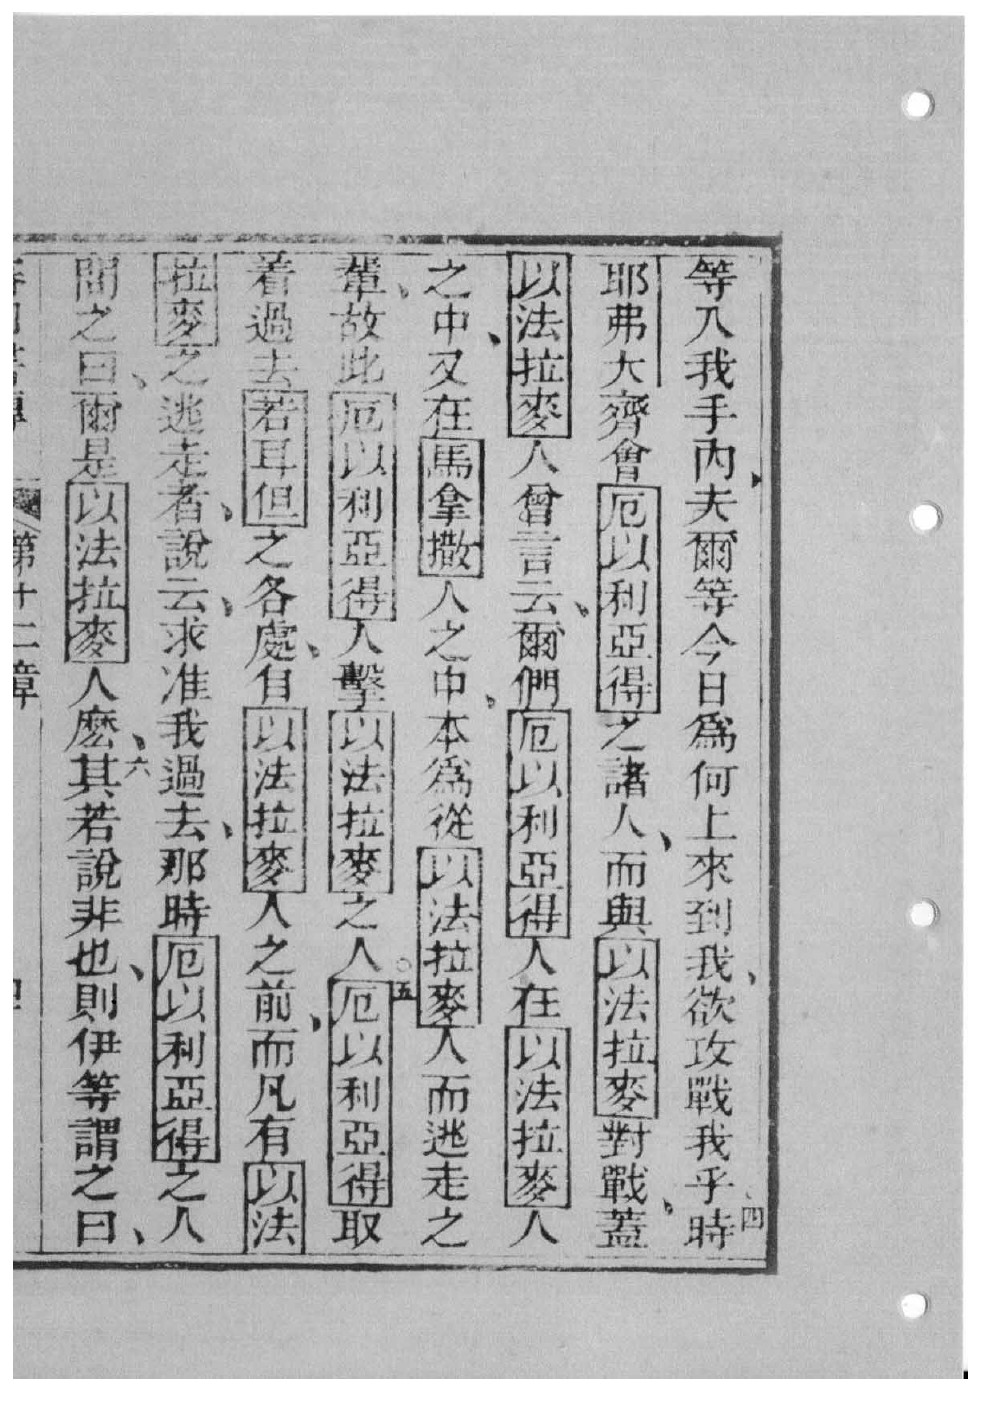 等入我手內夫爾等今日爲何上來到我欲攻戰我乎時
四
耶弗大齊會厄以利亞得之諸人而與以法拉麥對戰蓋
以法拉麥人曾言云爾們厄以利亞得人在以法拉麥人
之中又在馬拿撒人之中本爲從以法拉麥人而逃走之
輩故此厄以利亞得人擊以法拉麥之人○五厄以利亞得取
着過去若耳但之各處自以法拉麥人之前而凡有以法
拉麥之逃走者說云求准我過去那時厄以利亞得之人
問之曰爾是以法拉麥人麽六其若說非也則伊等謂之曰
第十二章